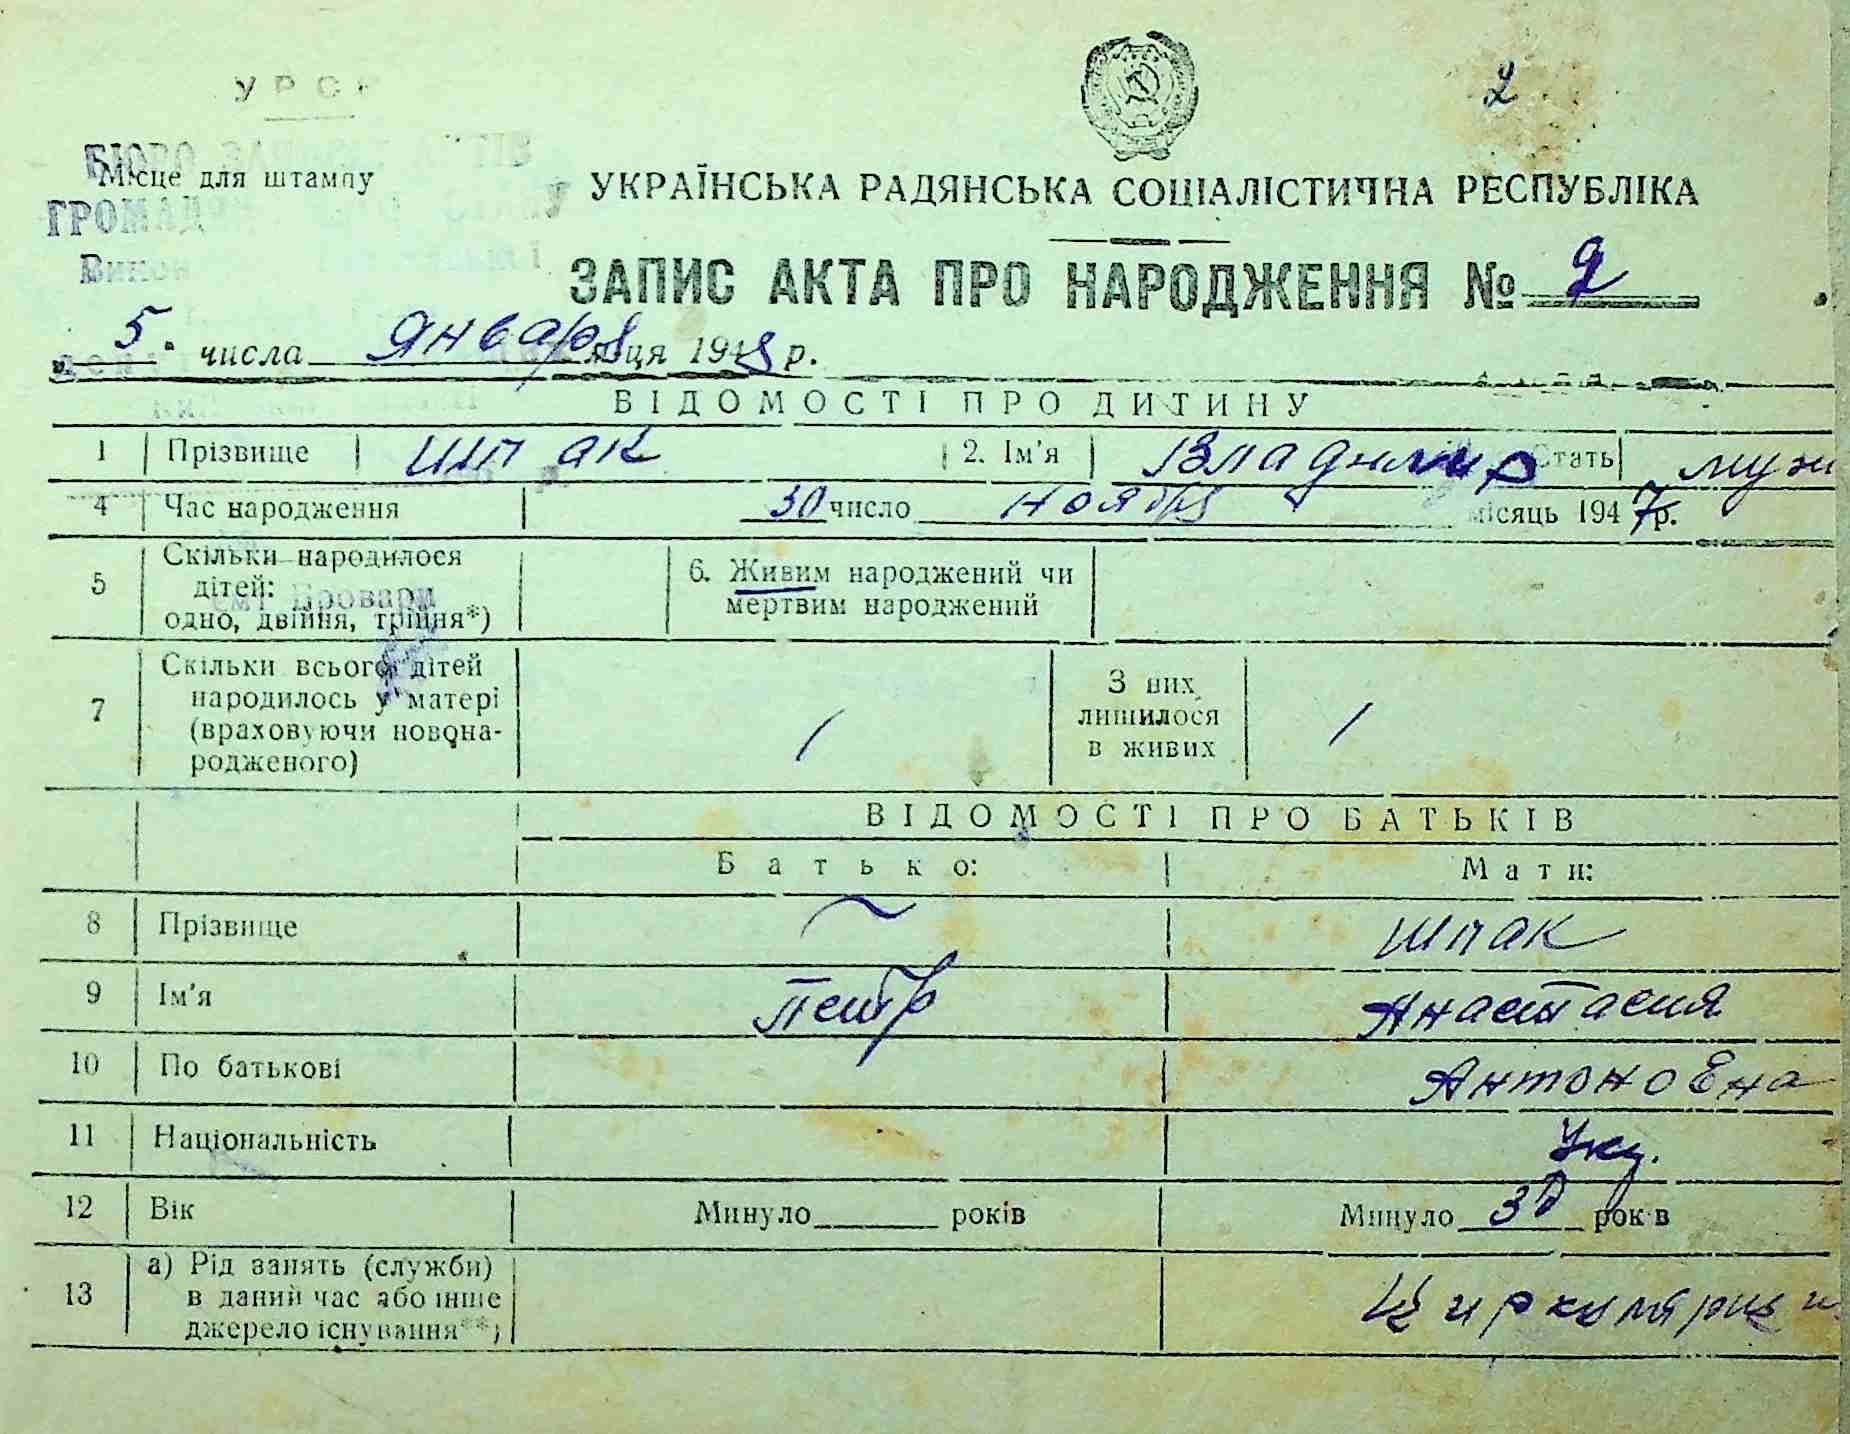 УРСР
2
Місце для штампу
БЮРО
ГРОМАДЯН
Викон
УКРАЇНСЬКА РАДЯНСЬКА СОЦІАЛІСТИЧНА РЕСПУБЛІКА
ЗАПИС АКТА ПРО НАРОДЖЕННЯ № 2
„5“ числа января місяця 1948 р.
ВІДОМОСТІ ПРО ДИТИНУ
1 Прізвище Шпак 2. Ім'я Владимир Стать муж
4 Час народження 30 число ноября місяць 1947 р.
5 Скільки народилося
дітей:
одно, двійня, трійня*)
6. Живим народжений чи
мертвим народжений
смт Бровари
7 Скільки всього дітей
народилось у матері
(враховуючи новона-
родженого)
1
З них
лишилося
в живих
1
ВІДОМОСТІ ПРО БАТЬКІВ
Батько: Мати:
8 Прізвище ~ Шпак
9 Ім'я Петр Анастасия
10 По батькові Антоновна
11 Національність Укр.
12 Вік Минуло ______ років Минуло 30 років
13 а) Рід занять (служби)
в даний час або інше
джерело існування**)